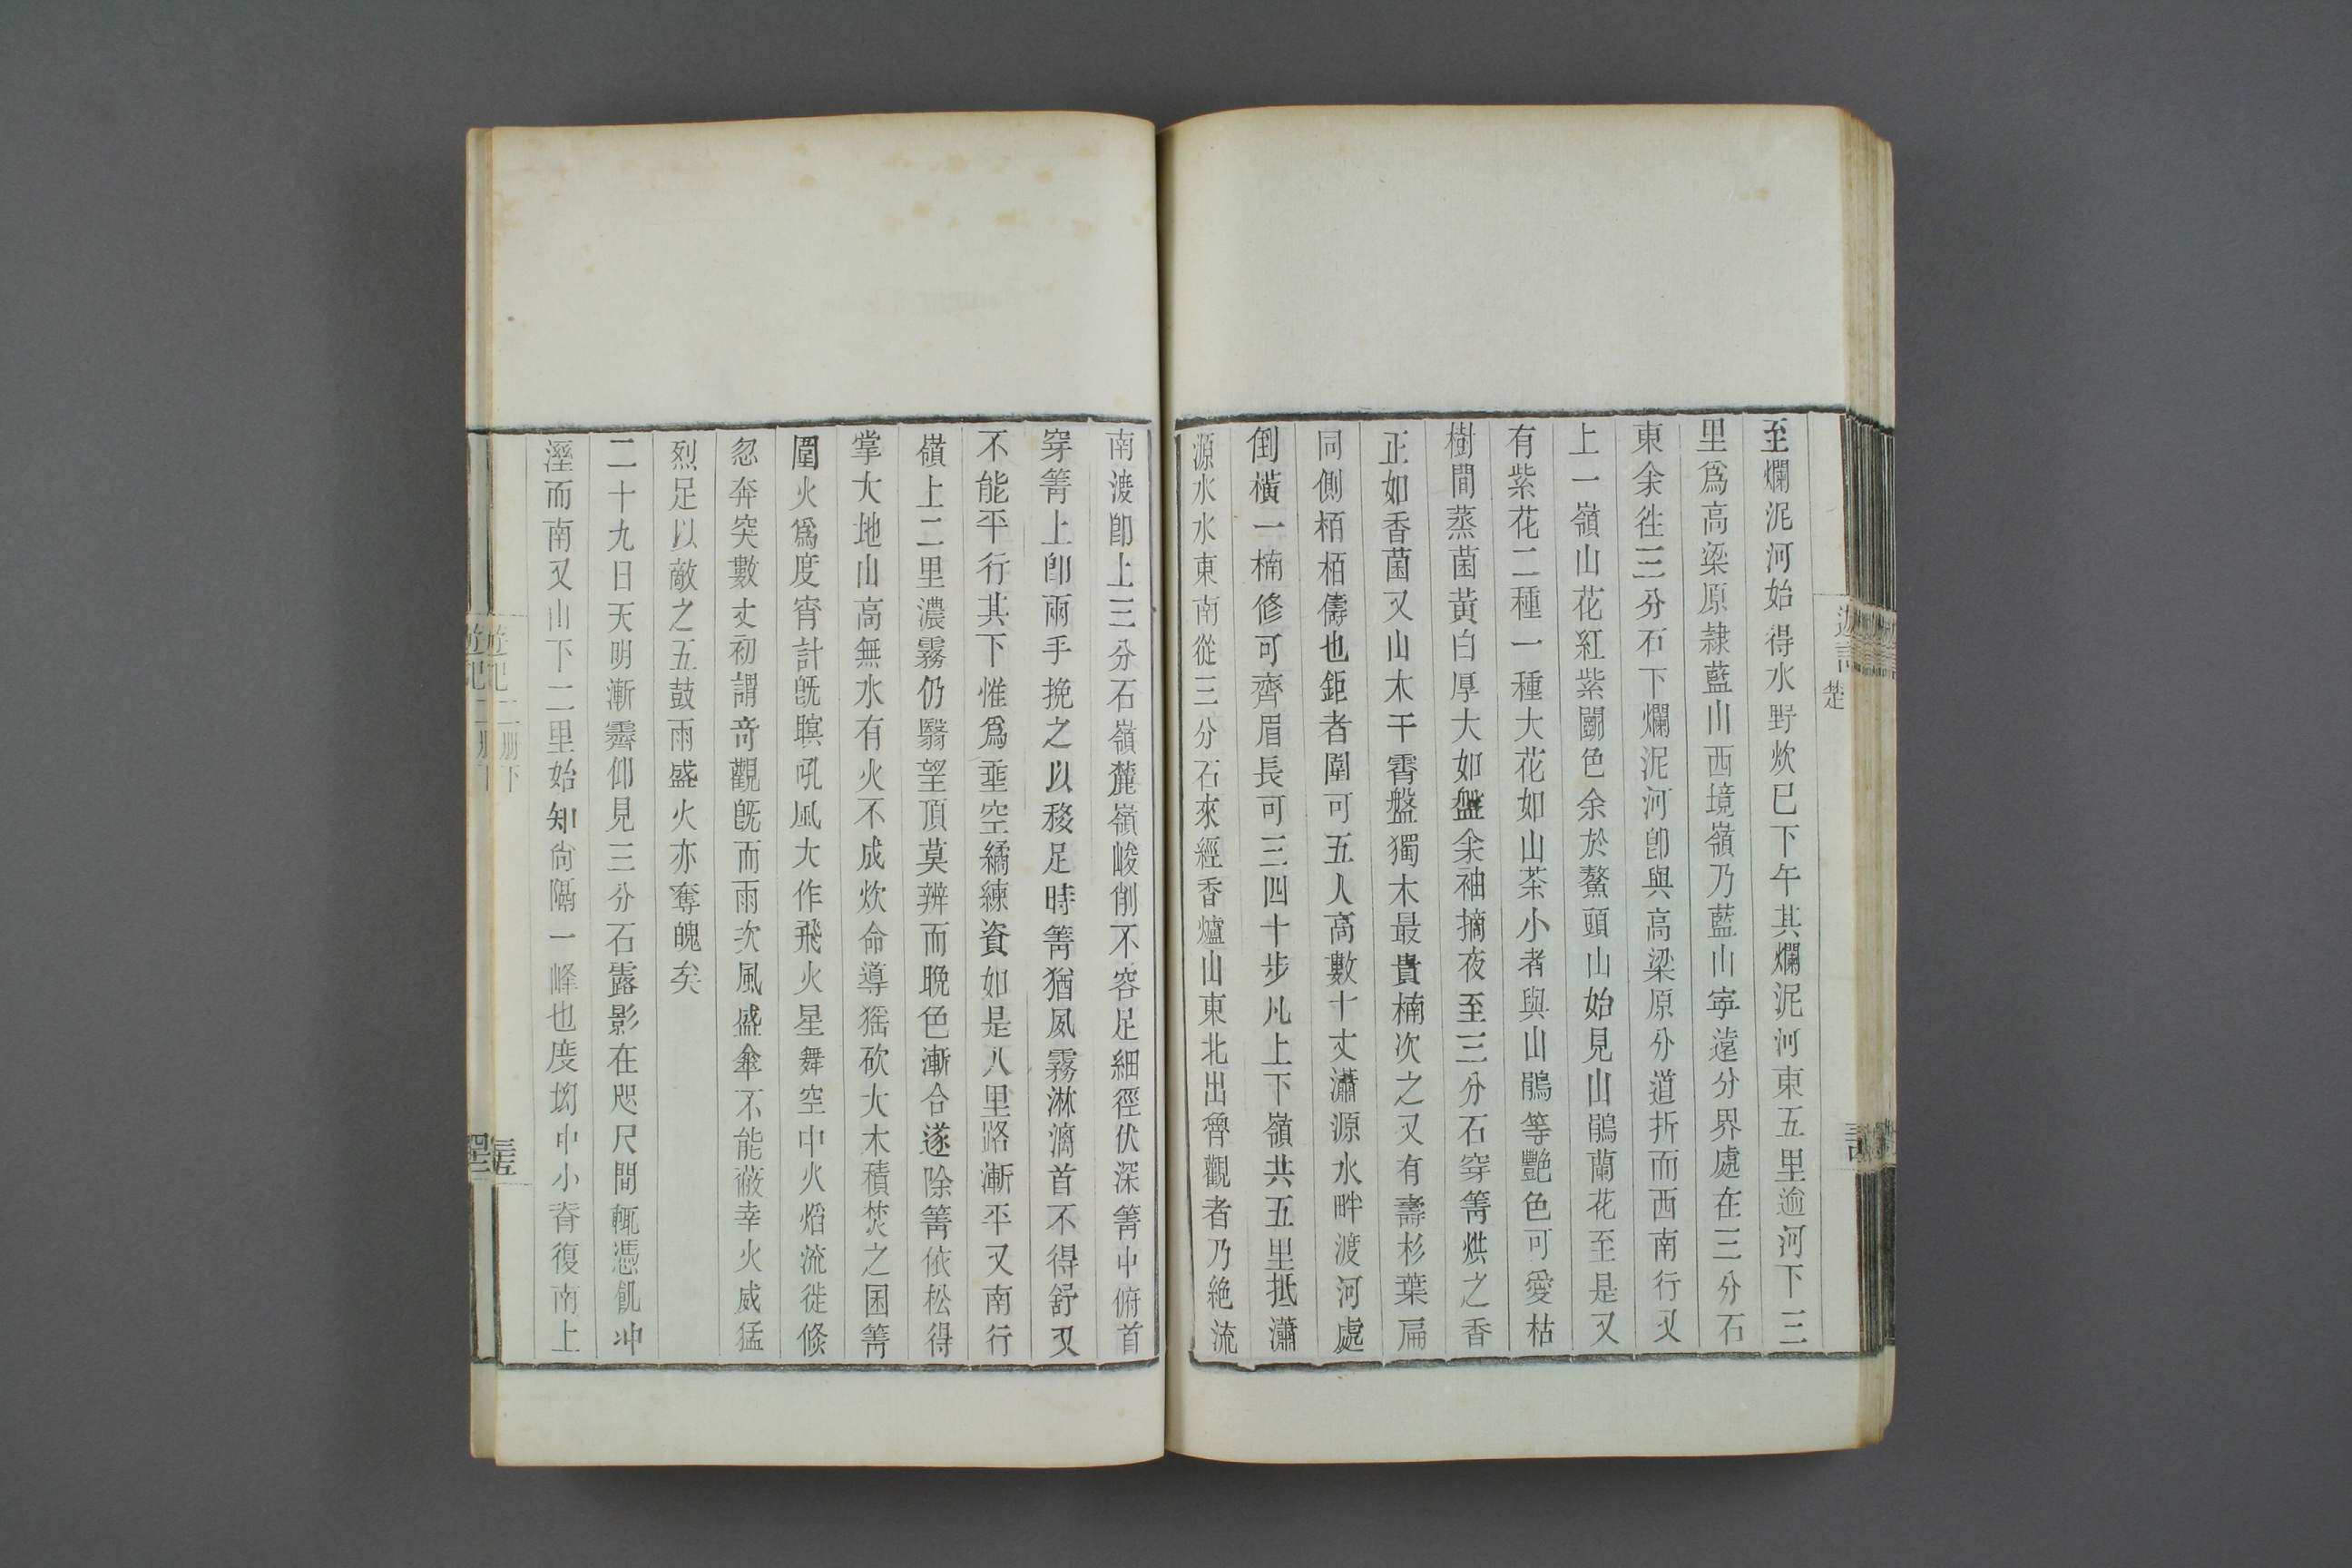 至爛泥河始得水野炊已下午其爛泥河東五里逾河下三
里爲高梁原隷藍山西境嶺乃藍山寧遠分界處在三分石
東余徃三分石下爛泥河卽與高梁原分道折而西南行又
上一嶺山花紅紫鬭色余於鰲頭山始見山鵑蘭花至是又
有紫花二種一種大花如山茶小者與山鵑等艷色可愛枯
樹間蒸菌黃白厚大如盤余袖摘夜至三分石穿箐烘之香
正如香菌又山木干霄盤獨木最貴楠次之又有壽杉葉扁
同側栢栢儔也鉅者圍可五人高數十丈瀟源水畔渡河處
倒橫一楠修可齊眉長可三四十步凡上下嶺共五里抵瀟
源水水東南從三分石來經香爐山東北出䆳觀者乃絶流
南渡卽上三分石嶺麓嶺峻削不容足細徑伏深箐中俯首
穿箐上卽兩手挽之以移足時箐猶夙霧淋漓首不得舒又
不能平行其下惟爲埀空繘練資如是八里路漸平又南行
嶺上二里濃霧仍翳望頂莫辨而晩色漸合遂除箐依松得
掌大地山高無水有火不成炊命導猺砍大木積焚之困箐
圍火爲度宵計旣瞑吼風大作飛火星舞空中火熖流徙倏
忽奔突數丈初謂竒觀旣而雨次風盛傘不能蔽幸火威猛
烈足以敵之五鼓雨盛火亦奪魄矣
二十九日天明漸霽仰見三分石露影在咫尺間輒憑飢冲
溼而南又山下二里始知尙隔一峰也度坳中小脊復南上
遊記 二册下